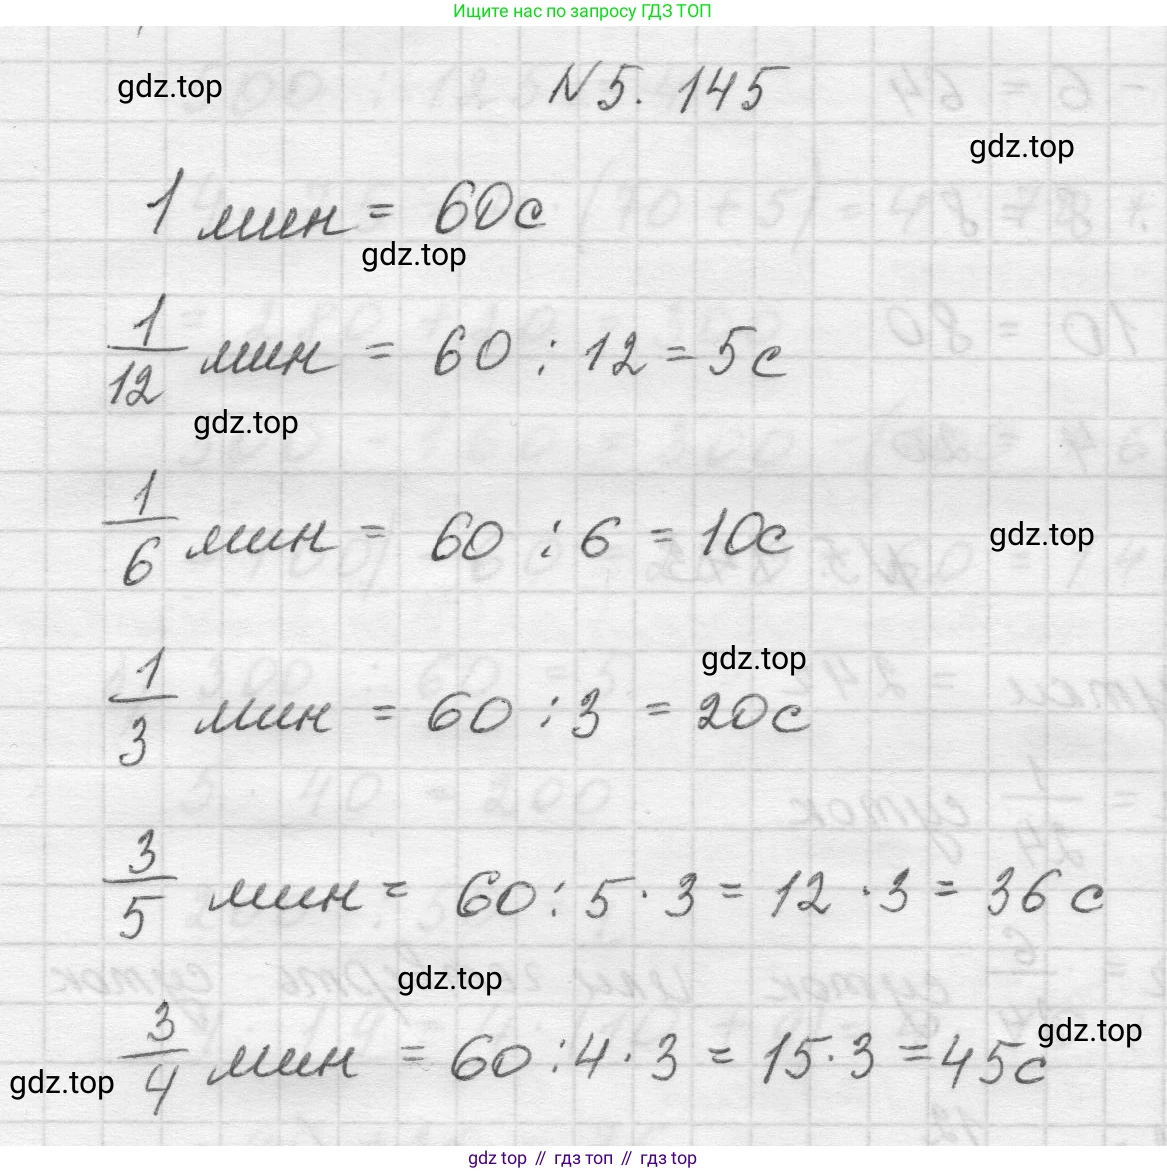 Ищите нас по запросу ГДЗ ТОП
gdz.top
N 5. 145
gdz.top
1 мин = 60 с
gdz.top
1/12 мин = 60 : 12 = 5 с
gdz.top
1/6 мин = 60 : 6 = 10 с
gdz.top
gdz.top
1/3 мин = 60 : 3 = 20 с
3/5 мин = 60 : 5 · 3 = 12 · 3 = 36 с
gdz.top
3/4 мин = 60 : 4 · 3 = 15 · 3 = 45 с
gdz.top
gdz.top
gdz top // гдз топ // гдз top